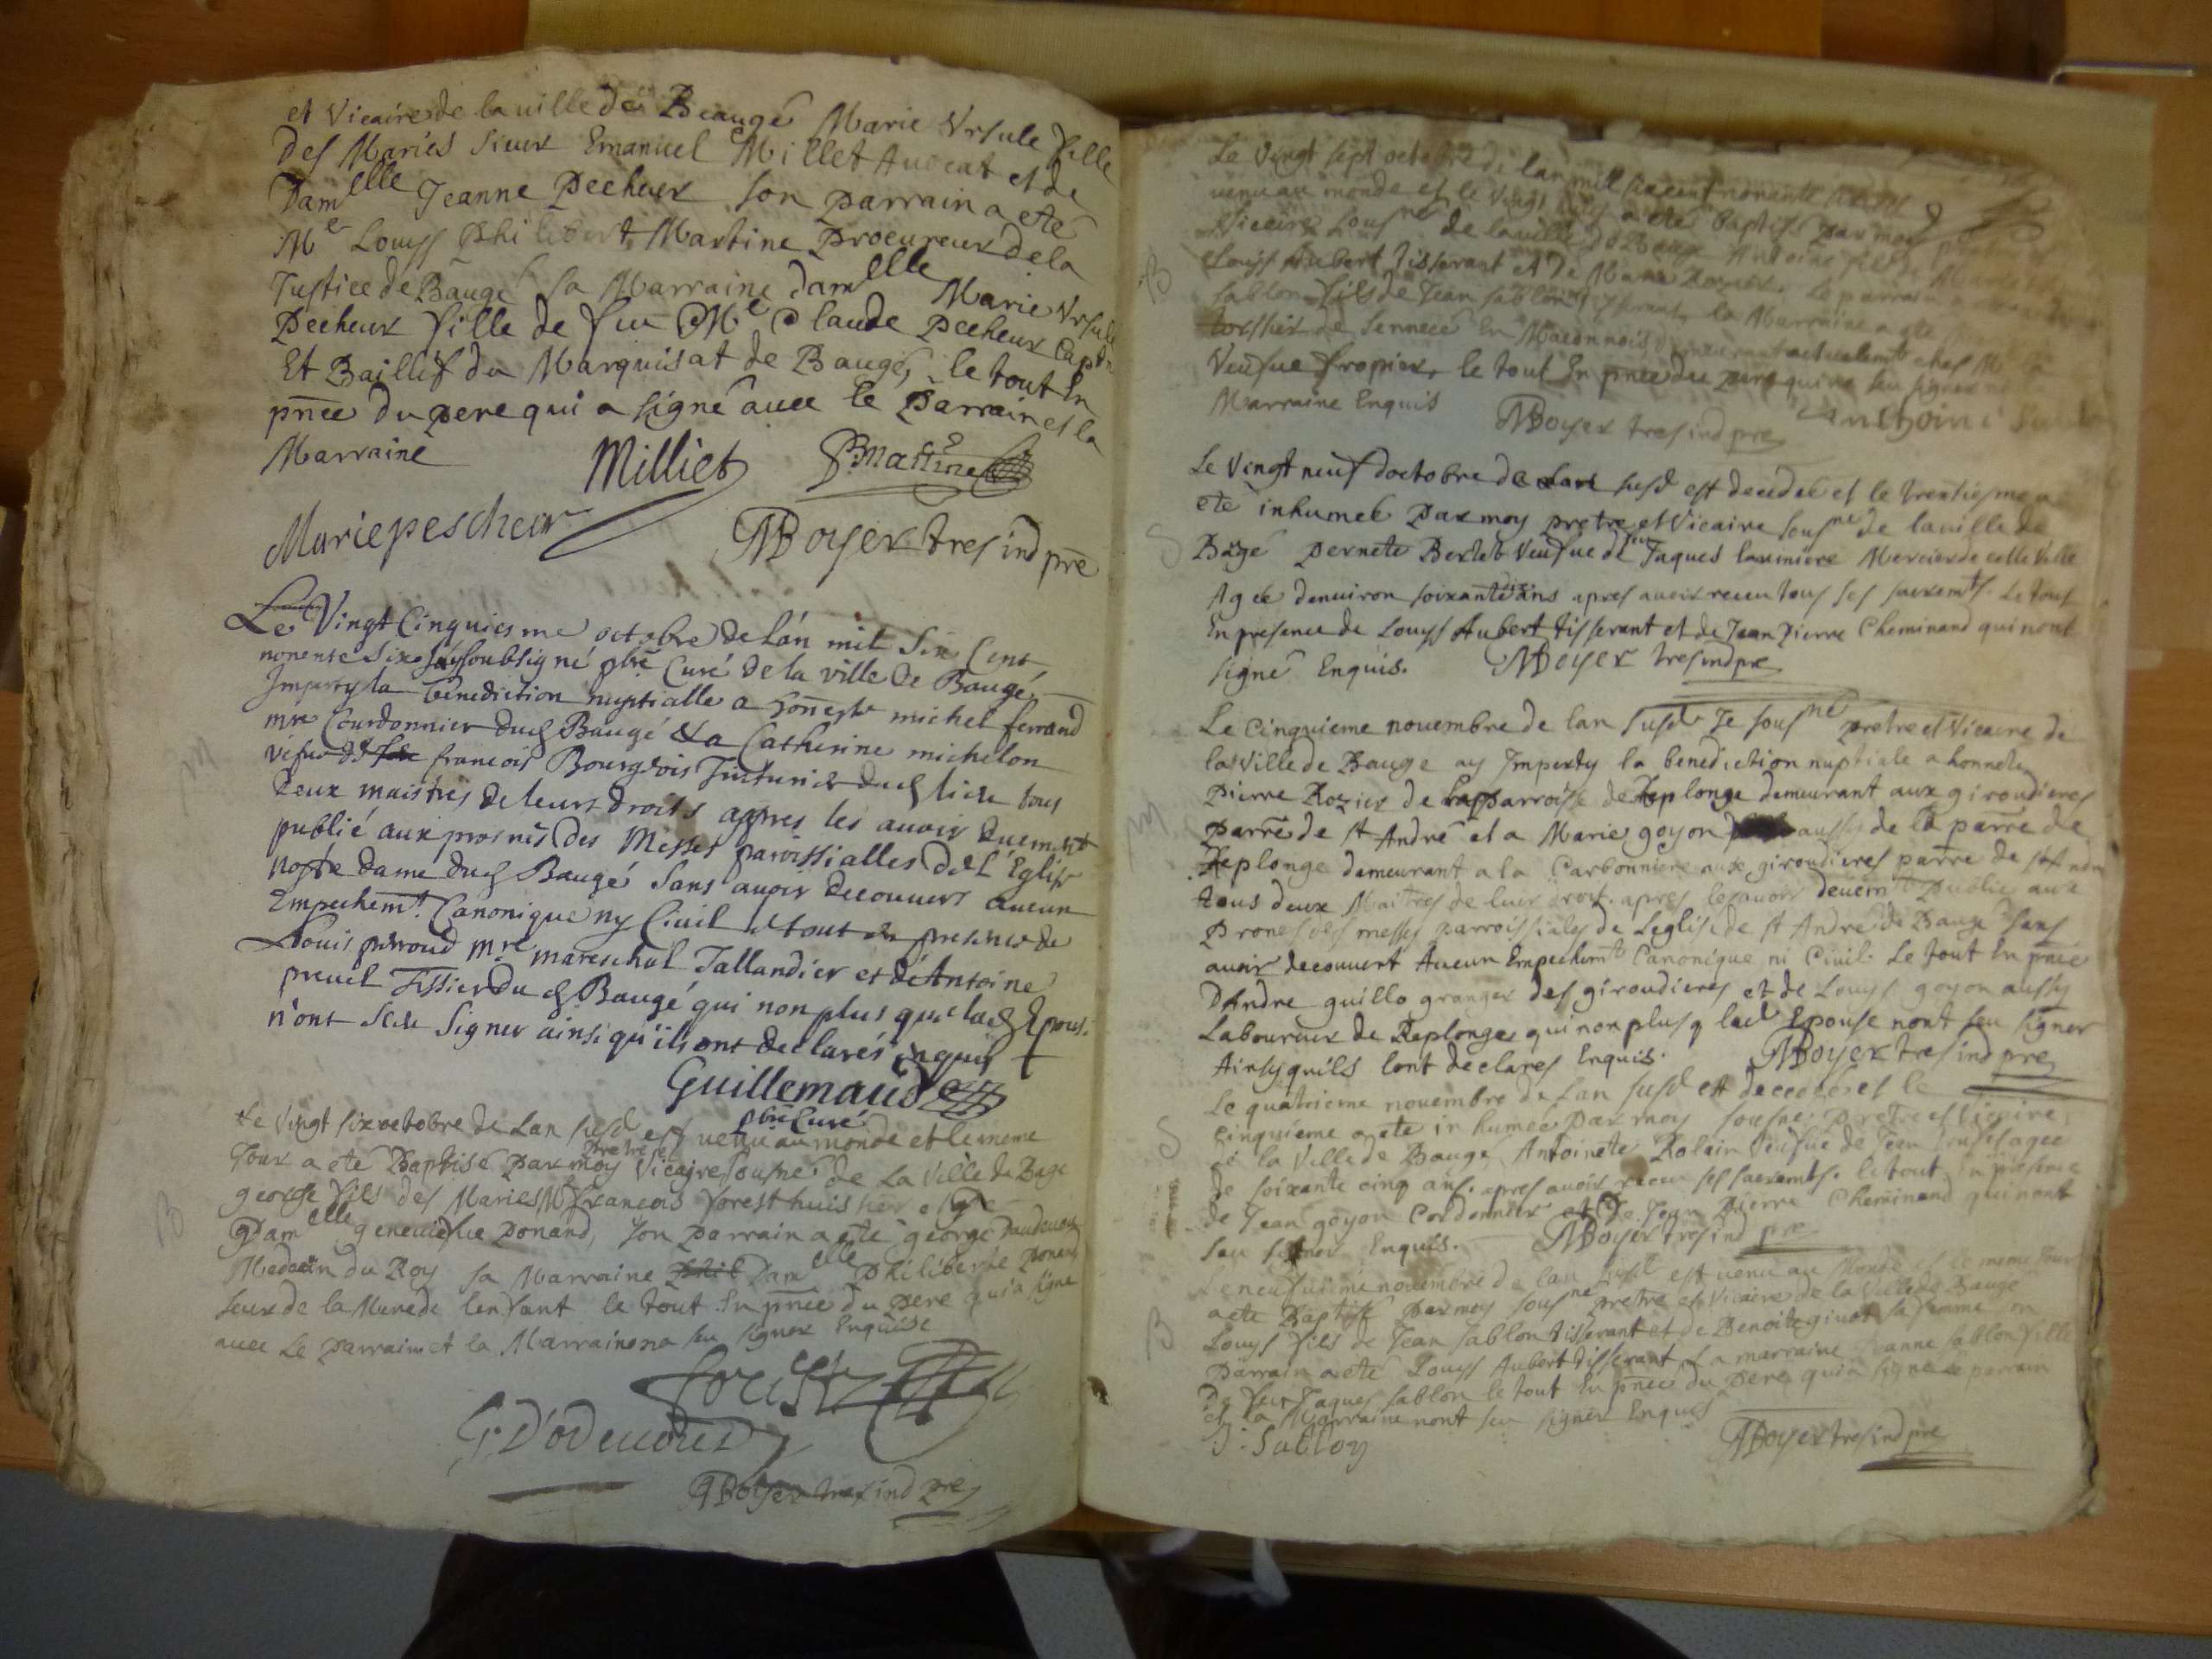 et Vicaire de la uille de Beaugé Marie Vrsule fille
des Mariés sieur Emanuel Millet Auocat et de
Damelle Jeanne Pecheur son parrain a eté
Me Louys Philibert Martine Procureur de la
Justice de Baugé sa Marraine damelle Marie Vrsule
Pecheur fille de feu Me Claude Pecheur Capne
Et Baillif du Marquisat de Baugé, le tout En
pnce du pere qui a signé auec le Parrain et la
Marraine
Milliet
Martine
Mariepescheur
Boyer tres ind pre
Le Vingt Cinquiesme octobre de lan mil Six Cent
nonente Six Jay soubsigné pbre Curé de la ville de Baugé
Imparty la benediction nuptialle a honeste michel ferrand
mre Courdonnier dud Baugé & a Catherine michelon
vefue de francois Bourgeois dud lieu tous
deux maistres de leurs droits appres les auoir duement
publié aux prosnes des Messes paroissialles de l'Eglise
nostre dame dud Baugé Sans auoir decouuert aucun
Empechemt Canonique ny Ciuil le tout en presence de
Louis perroud mre mareschal Tallandier et de Antoine
preuel Tissier du d Baugé qui non plus que lad Epouse
n'ont sceu Signer ainsi qu'ils ont declarés enquis
Guillemaud
pbre Curé
Le Vingt six octobre de Lan susd est venu au monde et le meme
Jour a eté Baptisé par moy pretre et Vicaire sousné de La Ville de Bage
george fils des Maries Me francois forest huissier et
Damelle geneuiefue Ponard, son parrain a eté george Daudenou
Medecin du Roy sa Marraine Phil Damelle Philiberte Ponard
seur de la Mere de lenfant le tout En pnce du pere qui a signé
auec Le parrain et la Marraine na seu signer Enquise
forest
G. Dodenoud
Boyer tres ind pre
Le Vingt sept octobre de lan mill sixcent nonante
venu au monde et le vingt a eté Baptisé par moy
Vicaire Sousné de la uille de Bauge Antoine fils de
Louys Aubert tisserant et De Marie Le parrain
sablon fils de Jean sablon tisserant, la Marraine a ete
de Sennecé En Maconnois demeurant actuelemt chez
Veufue fropier, le tout En pnce du pere qui ne seu signer
Marraine Enquis
Boyer tres ind pre
Le Vingt neuf doctobre de Lan susd est decedée et le trentiesme a
eté inhumeé Par moy pretre et Vicaire sousné de la uille de
Bagé Pernete Bertet Veufue de feu Jaques lauminere Mercier de cette Ville
Agée denuiron soixante dix ans apres auoir receu tous ses sacremts. Le tout
En presence de Louys Aubert tisserant et de Jean Pierre Cheminand qui nont
signé Enquis. Boyer tres ind pre
Le Cinquieme nouembre de lan susd Je sousné pretre et Vicaire de
la Ville de Bauge ay Imparty la benediction nuptiale a honnete
Pierre Rozier de la Parroisse de Replonge demeurant aux giroudieres
Parre de st André et a Marie goyon aussy de la parre de
Replonge demeurant a la Carbonniere aux giroudieres parre de st Andre
tous deux Maitres de leur droit. apres les auoir deuemt Publie aux
Prones des messes parroissiales de Leglise de st André de Bauge sans
auoir decouuert Aucun Empechemt Canonique ni Ciuil. Le tout En pnce
DAndre guillo granger des giroudieres et de Louys goyon aussy
Laboureur de Replonge qui non plus q lad Epouse nont seu signer
Ainsy quils lont declares Enquis. Boyer tres ind pre
Le quatrieme nouembre de Lan susd est decedée et le
Cinquieme a ete inhumée Par moy sousné Pretre et Vicaire
de la Ville de Bauge Antoinete Rolain Veufue de Jean agee
de soixante cinq ans. apres auoir receu ses sacremts. le tout En presence
de Jean goyon Cordonnier et De Jean Pierre Cheminand qui nont
seu signer Enquis. Boyer tres ind pre
Le neufuieme nouembre de lan susd est venu au Monde et le meme Jour
a ete Baptisé Par moy sousné pretre et Vicaire de la Ville de Bauge
Louys fils de Jean sablon tisserant et de Benoite giuot sa femme son
Parrain a eté Louys Aubert tisserant La marraine Jeanne sablon fille
De feu Jaques sablon le tout En pnce du Pere qui a signe Le parrain
et la Marraine nont seu signer Enquis
J. Sablon
Boyer tres ind pre